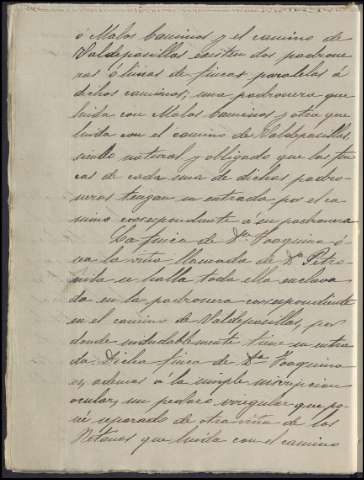 ó Malos caminos y el camino de
Valdepasillas existen dos padrone
ras ó lineas de fincas paralelas á
dichos caminos; una padronera que
linda con Malos caminos y otra que
linda con el camino de Valdepasillas,
siendo natural y obligado que las fin
cas de cada una de dichas padro
neras tengan su entrada por el ca
mino correspondiente á su padronera
La finca de Dª Joaquina ó
sea la viña llamada de Dª Petro
nila se halla toda ella enclava
da en la padronera correspondiente
en el camino de Valdepasillas, por
donde indudablemente tiene su entra
da. Dicha finca de Dª Joaquina
es, ademas á la simple inspeccion
ocular, un pedazo irregular que
separado de otra viña de los
que linda con el camino